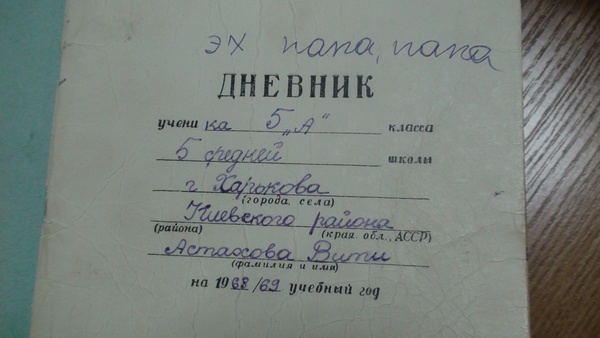 эх папа, папа
ДНЕВНИК
ученика 5 „А" класса
5 средней школы
г Харькова
(города, села)
Киевского района
(района) (края, обл., АССР)
Астахова Вити
(фамилия и имя)
на 1968/69 учебный год